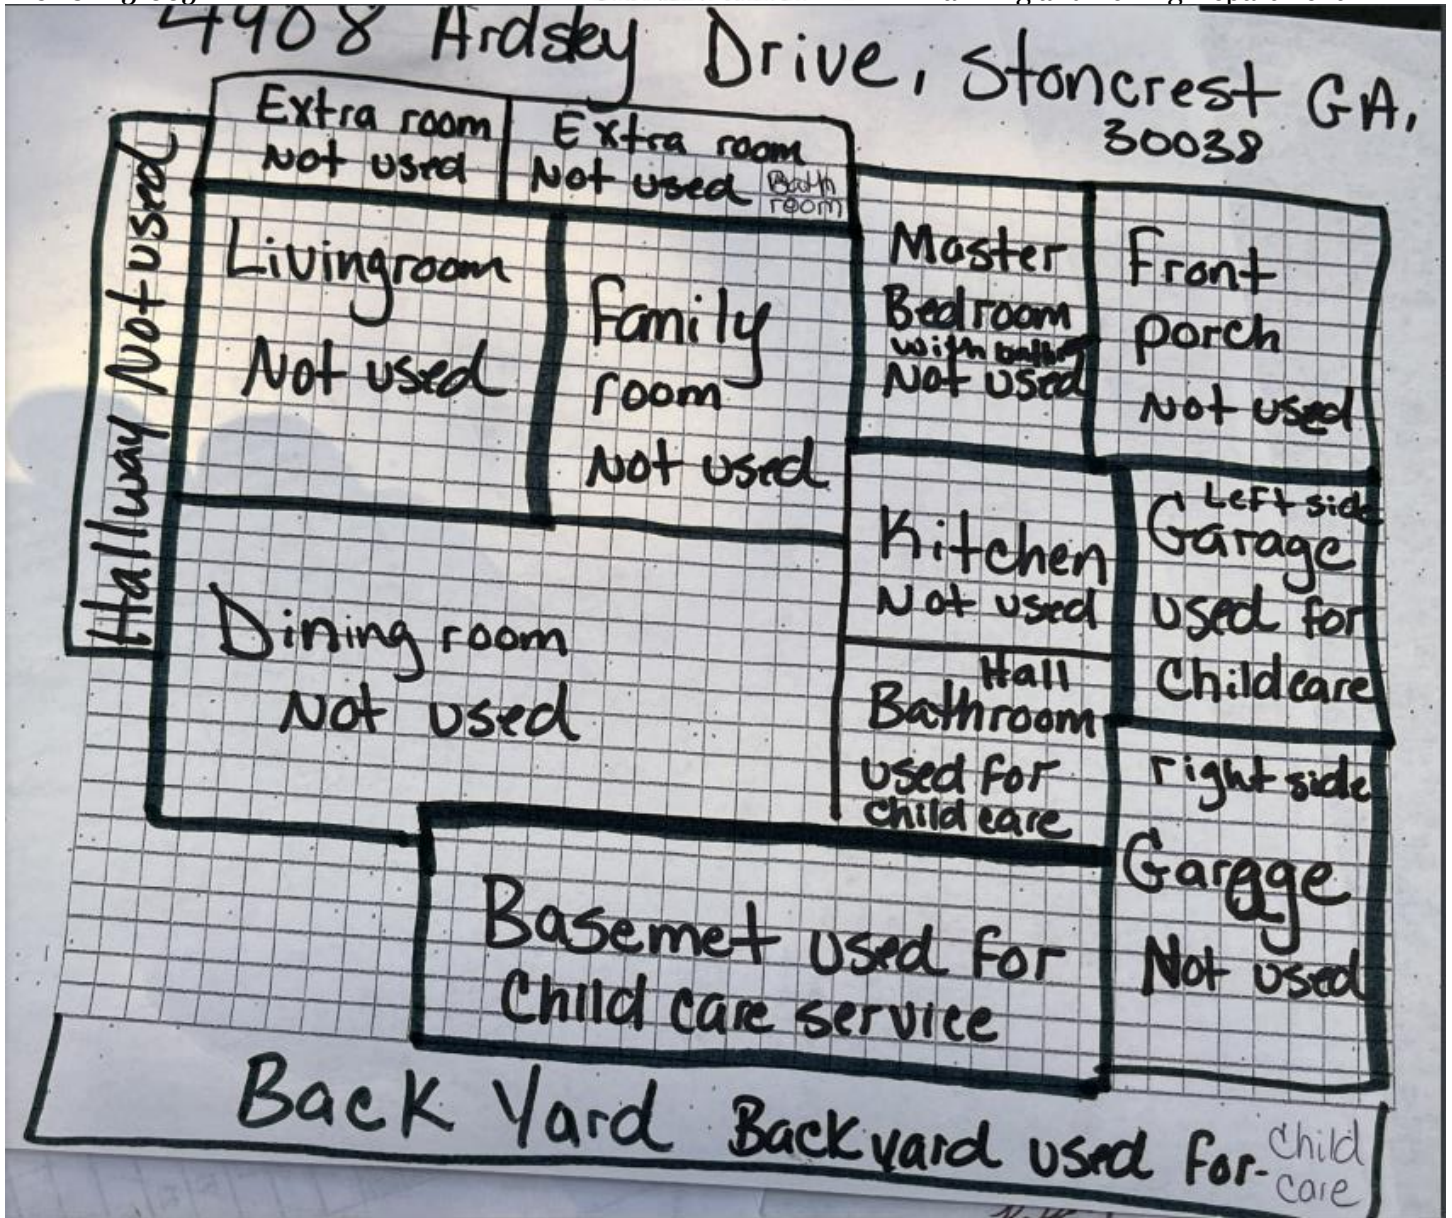 4908 Ardsley Drive, Stoncrest GA,
30038
Extra room
Not used
Extra room
Not used
Bath
room
Hallway Not used
Livingroom
Not used
Family
room
Not used
Master
Bedroom
with
Not used
Front
porch
Not used
Dining room
Not used
Kitchen
Not used
Left side
Garage
used for
Childcare
Hall
Bathroom
used for
child care
right side
Garage
Not used
Basemet used for
Child care service
Back Yard Backyard used for- Child
care